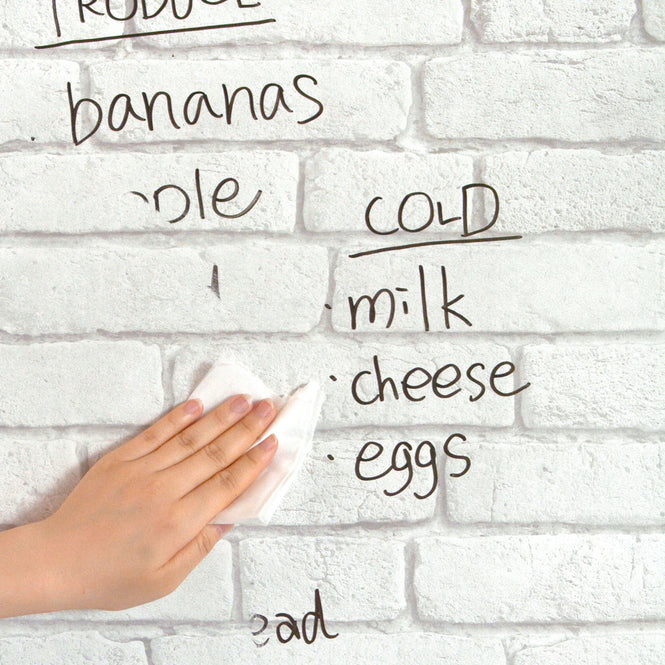 PRODUCE
· bananas
COLD
· milk
· cheese
· eggs